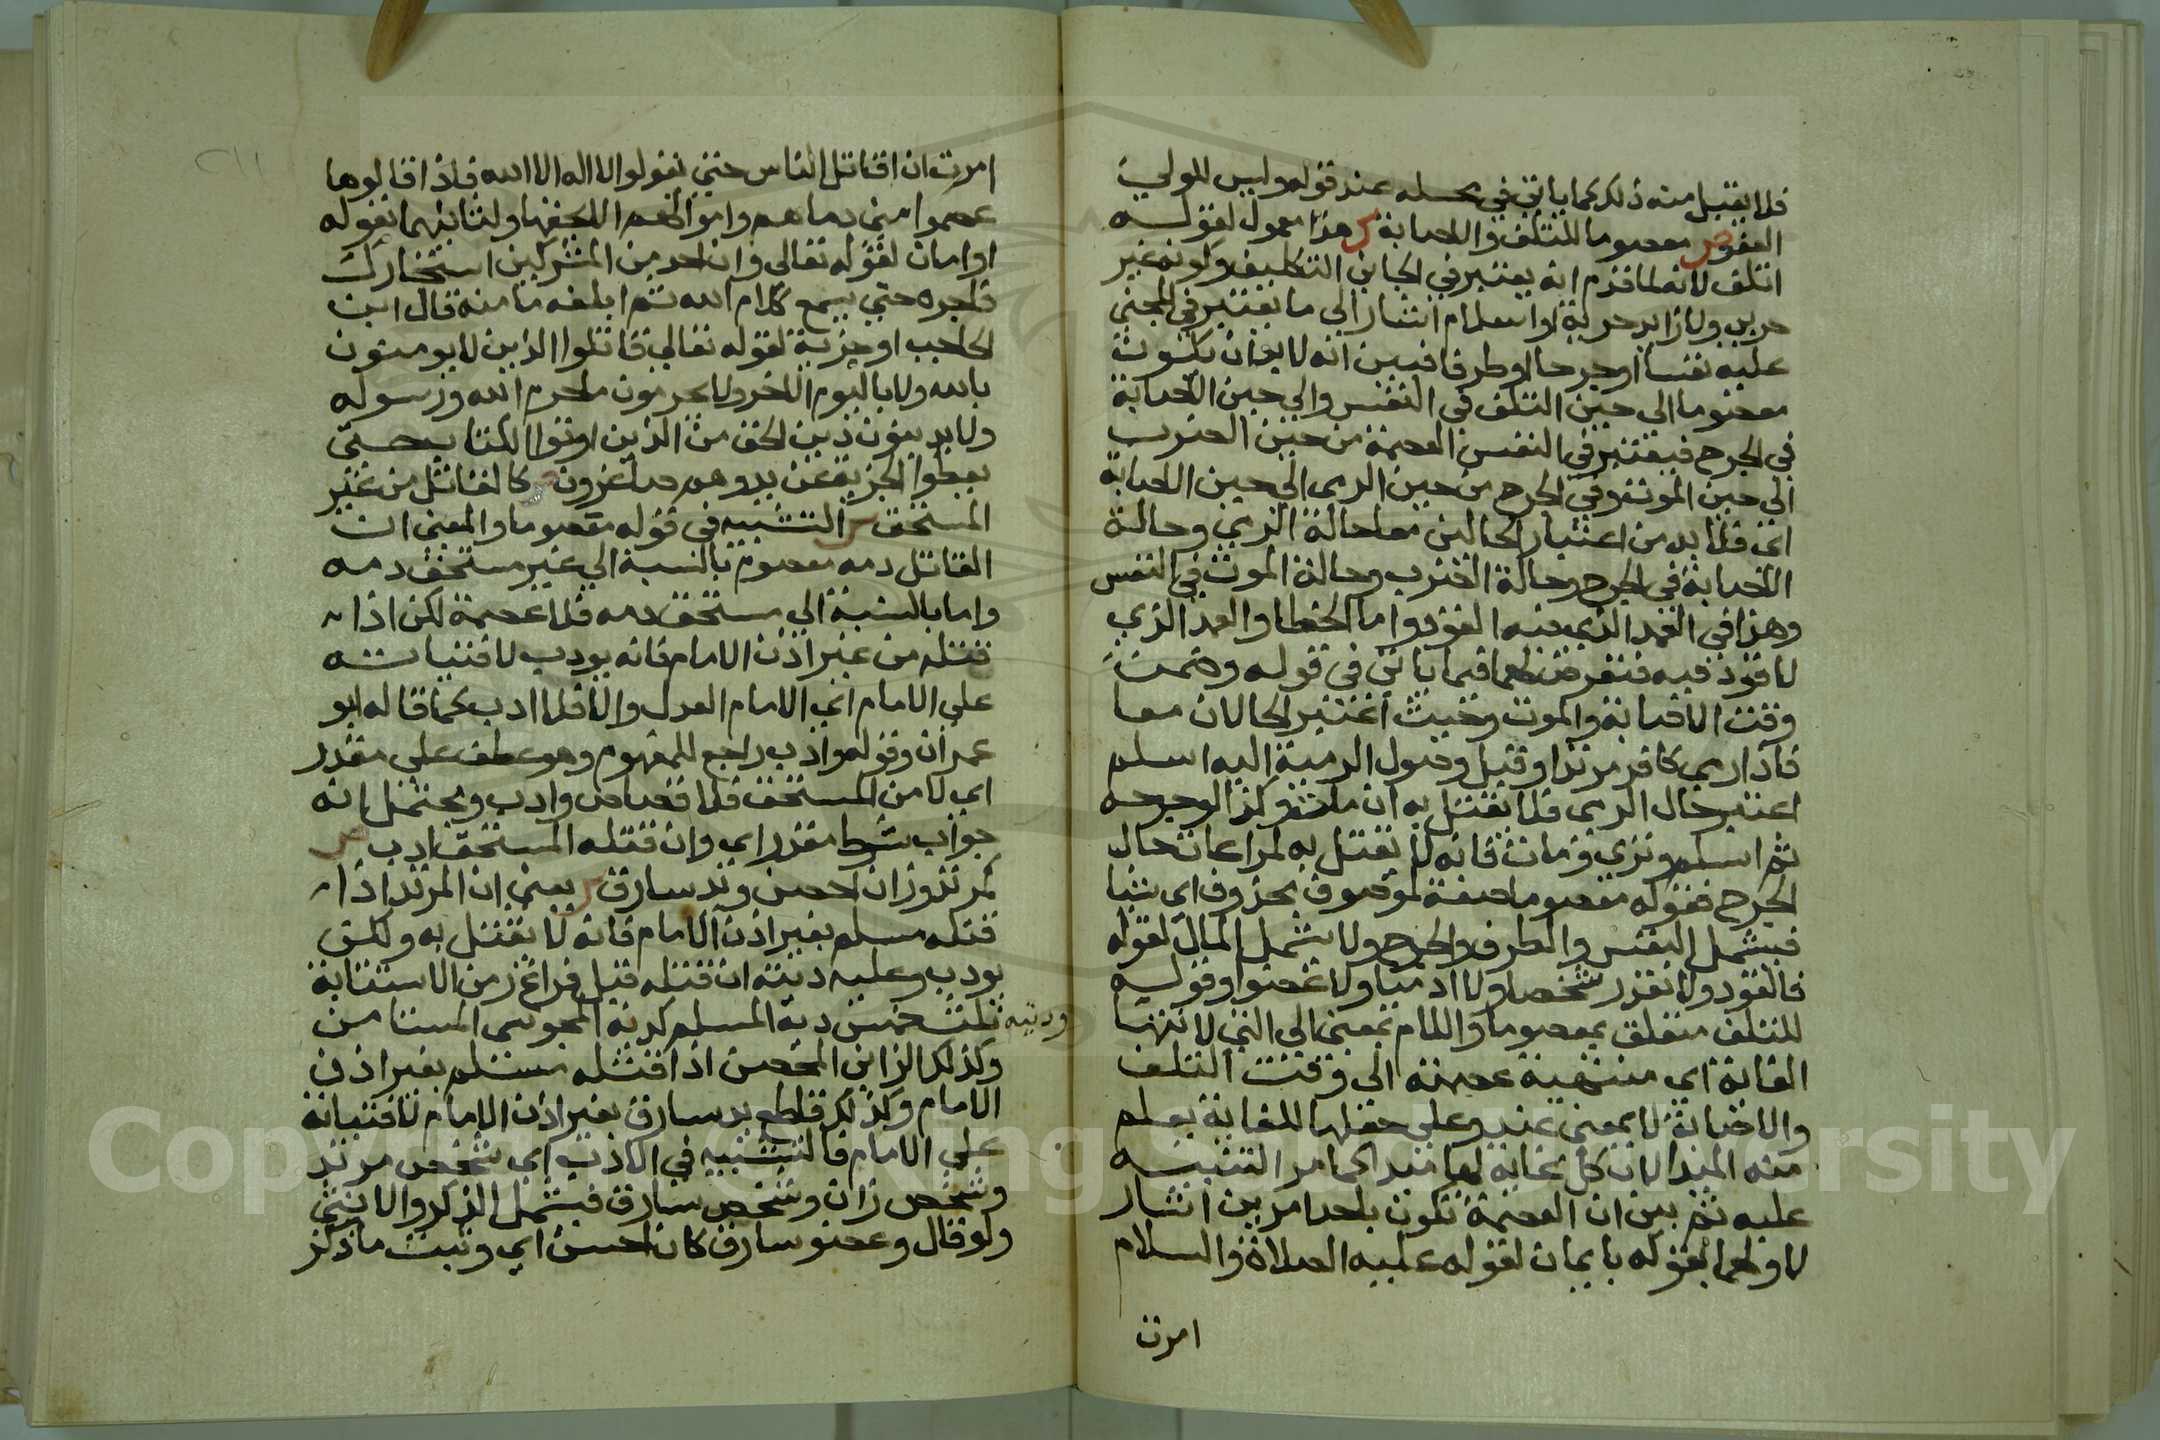 فلا يقبل منه ذلك كما ياتي في محله عند قوله وليس للولي
العفو ص معصوما للتلف والاصابة ش هذا معمول لقوله
اتلف لانه لما قدم انه يعتبر في الجاني التكليف وكونه غير
حربي ولا زايد حرية او اسلام اشار الي ما يعتبر في المجني
عليه نفسا او جرحا او طرفا فبين انه لا بد ان يكون
معصوما الي حين التلف في النفس والي حين الاصابة
في الجرح فيعتبر في النفس العصمة من حين الضرب
الي حين الموت وفي الجرح من حين الرمي الي حين الاصابة
اي فلا بد من اعتبار الحالين معا حالة الرمي وحالة
الاصابة في الجرح وحالة الضرب وحالة الموت في النفس
وهذا في العمد الذي فيه القود واما الخطا والعمد الذي
لا قود فيه فتعرض لهما فيما ياتي في قوله وضمن
وقت الاصابة والموت وحيث اعتبر الحالان معا
فاذا رمي كافر مرتدا وقبل وصول الرمية اليه اسلم
اعتبر حال الرمي فلا يقتل به ان مات وكذا لو جرحه
ثم اسلم ونزي ومات فانه لا يقتل به لمراعات حال
الجرح فقوله معصوما صفة لموصوف محذوف اي شيا
فيشمل النفس والطرف والجرح ولا يشمل المال لقوله
فالقود ولا نقدر شخصا ولا ادميا ولا عضوا وقوله
للتلف متعلق بمعصوما واللام بمعني الي التي لانتها
الغاية اي منتهية عصمته الي وقت التلف
والاصابة لا بمعني عند وعلي جعلها للغاية يعلم
منه المبدا لان كل غاية لها مبدا كما مر التنبيه
عليه ثم بين ان العصمة تكون باحد امرين اشار
لاولهما بقوله بايمان لقوله عليه الصلاة والسلام
امرت
امرت ان اقاتل الناس حتي يقولوا لا اله الا الله فاذا قالوها
عصموا مني دماهم واموالهم الا بحقها ولثانيهما بقوله
او امان لقوله تعالي وان احد من المشركين استجارك
فاجره حتي يسمع كلام الله ثم ابلغه مامنه قال ابن
الحاجب او جزية لقوله تعالي قاتلوا الذين لا يومنون
بالله ولا باليوم الاخر ولا يحرمون ماحرم الله ورسوله
ولا يدينون دين الحق من الذين اوتوا الكتاب حتي
يعطوا الجزية عن يد وهم صاغرون ص كالقاتل من غير
المستحق ش التشبيه في قوله معصوما والمعني ان
القاتل دمه معصوم بالنسبة الي غير مستحق دمه
واما بالنسبة الي مستحق دمه فلا عصمة لكن اذا
قتله من غير اذن الامام فانه يودب لافتياته
علي الامام اي الامام العدل والا فلا ادب كما قاله ابو
عمران وقوله وادب راجع للمفهوم وهو عطف علي مقدر
اي لا من المستحق فلا قصاص وادب ويحتمل انه
جواب شرط مقدر اي وان قتله المستحق ادب ص
كمرتد وزان احصن ويد سارق ش يعني ان المرتد اذا
قتله مسلم بغير اذن الامام فانه لا يقتل به ولكن
يودب وعليه ديته ان قتله قبل فراغ زمن الاستتابة
وديته ثلث خمس دية المسلم كدية المجوسي المستامن
وكذلك الزاني المحصن اذا قتله مسلم بغير اذن
الامام وكذلك قاطع يد سارق بغير اذن الامام لافتياته
علي الامام فالتشبيه في الادب اي شخص مرتد
وشخص زان وشخص سارق فيشمل الذكر والانثي
ولو قال وعضو سارق كان احسن اي وثبت ما ذكر